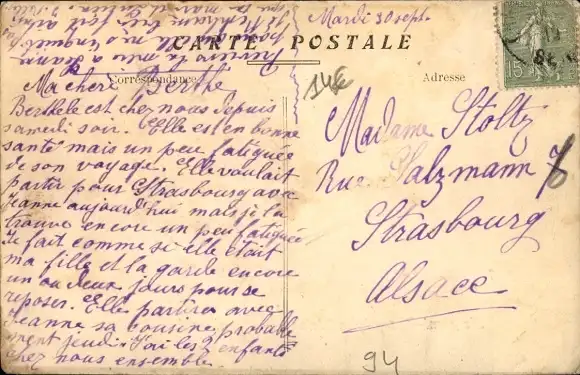 Mardi 30 sept.
CARTE POSTALE
Correspondance
Adresse
14€
15
Ma chère Berthe
Berthele est chez nous depuis
samedi soir. Elle est en bonne
santé mais un peu fatiguée
de son voyage. Elle voulait
partir pour Strasbourg avec
Jeanne aujourd'hui mais je la
trouve encore un peu fatiguée
Je fait comme si elle était
ma fille et la garde encore
un ou deux jours pour se
reposer. Elle partira avec
Jeanne sa cousine probable
ment jeudi. J'ai les 2 enfants
chez nous ensemble.
Madame Stoltz
Rue Salzmann 7
Strasbourg
Alsace
94